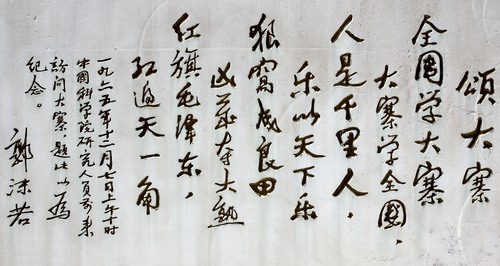 颂大寨
全国学大寨
大寨学全國，
人是千里人，
乐以天下乐
狼窝成良田
凶歲夺大熟
红旗毛泽东，
红遍天一角
一九六五年十二月七日上午十时
中国科学院研究人员前来
訪问大寨题此以為
纪念。
郭沫若